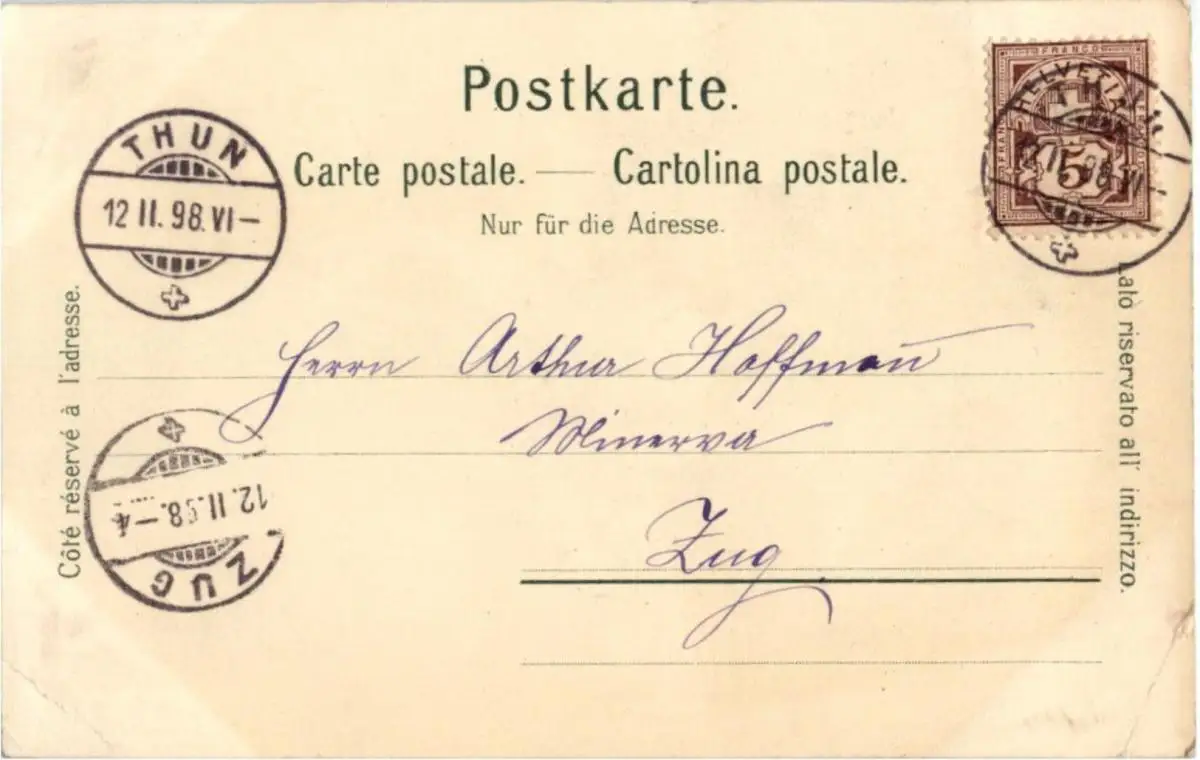 Postkarte.
Carte postale. — Cartolina postale.
Nur für die Adresse.
FRANCO
HELVETIA
5
THUN
12 II. 98. VI–
THUN
12 II. 98 VI–
Côté réservé à l'adresse.
Lato riservato all' indirizzo.
Herrn Arthur Hoffmann
Minerva
Zug
ZUG
12. II. 98. – 4